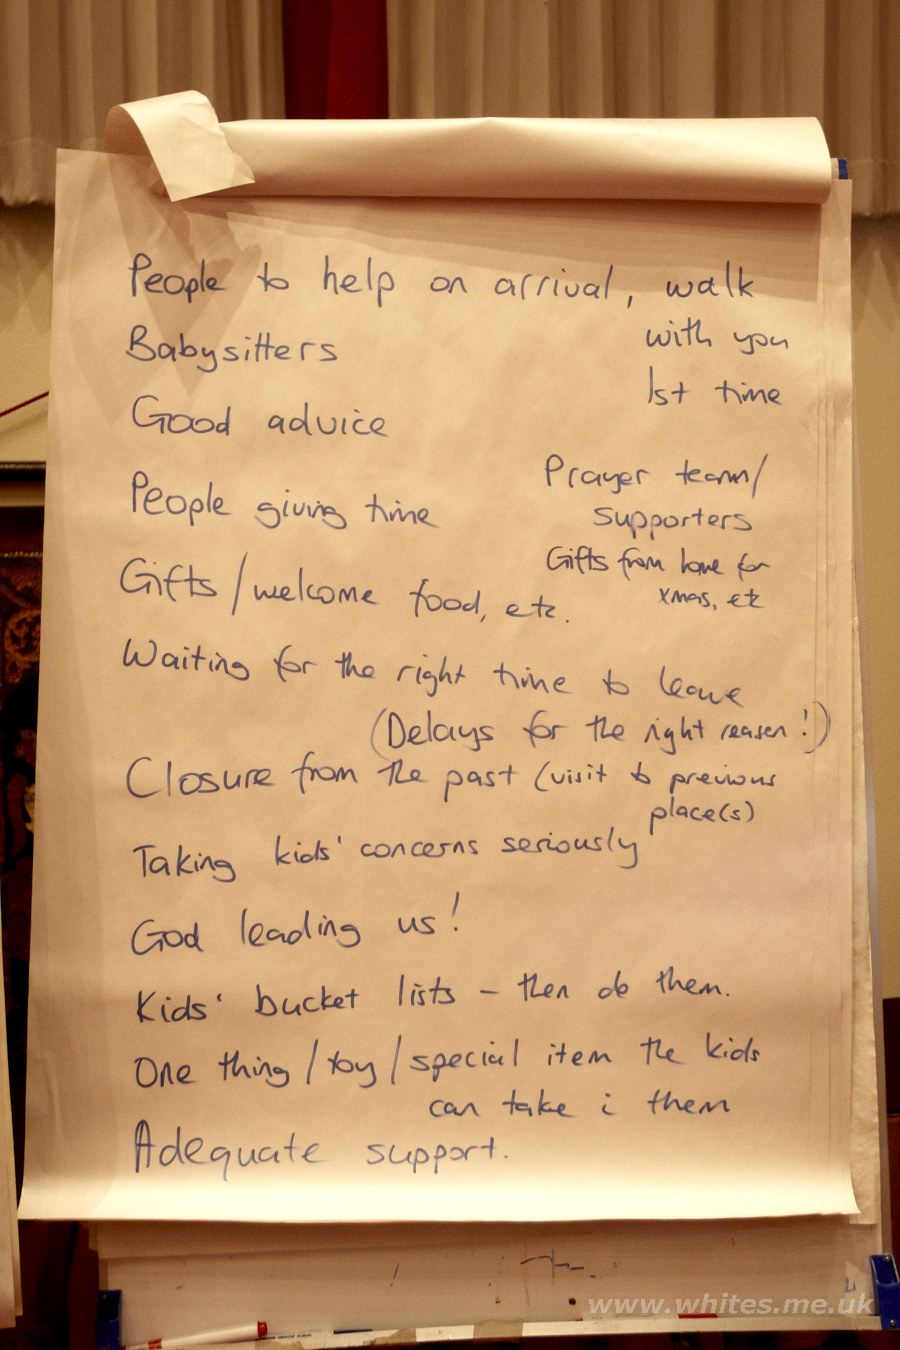 People to help on arrival, walk
with you
1st time
Babysitters
Good advice
People giving time
Prayer team/
supporters
Gifts from home for
xmas, etc
Gifts/welcome food, etc.
Waiting for the right time to leave
(Delays for the right reason!)
Closure from the past (visit to previous
place(s)
Taking kids' concerns seriously
God leading us!
Kids' bucket lists - then do them.
One thing/toy/special item the kids
can take i them
Adequate support.
www.whites.me.uk